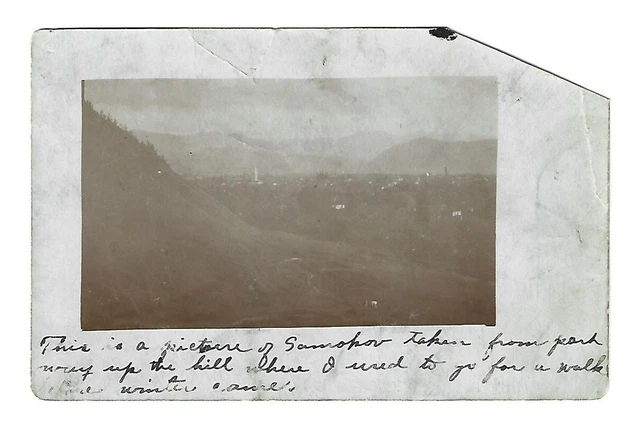 This is a picture of Samokov taken from part
way up the hill where I used to go for a walk
winter came.